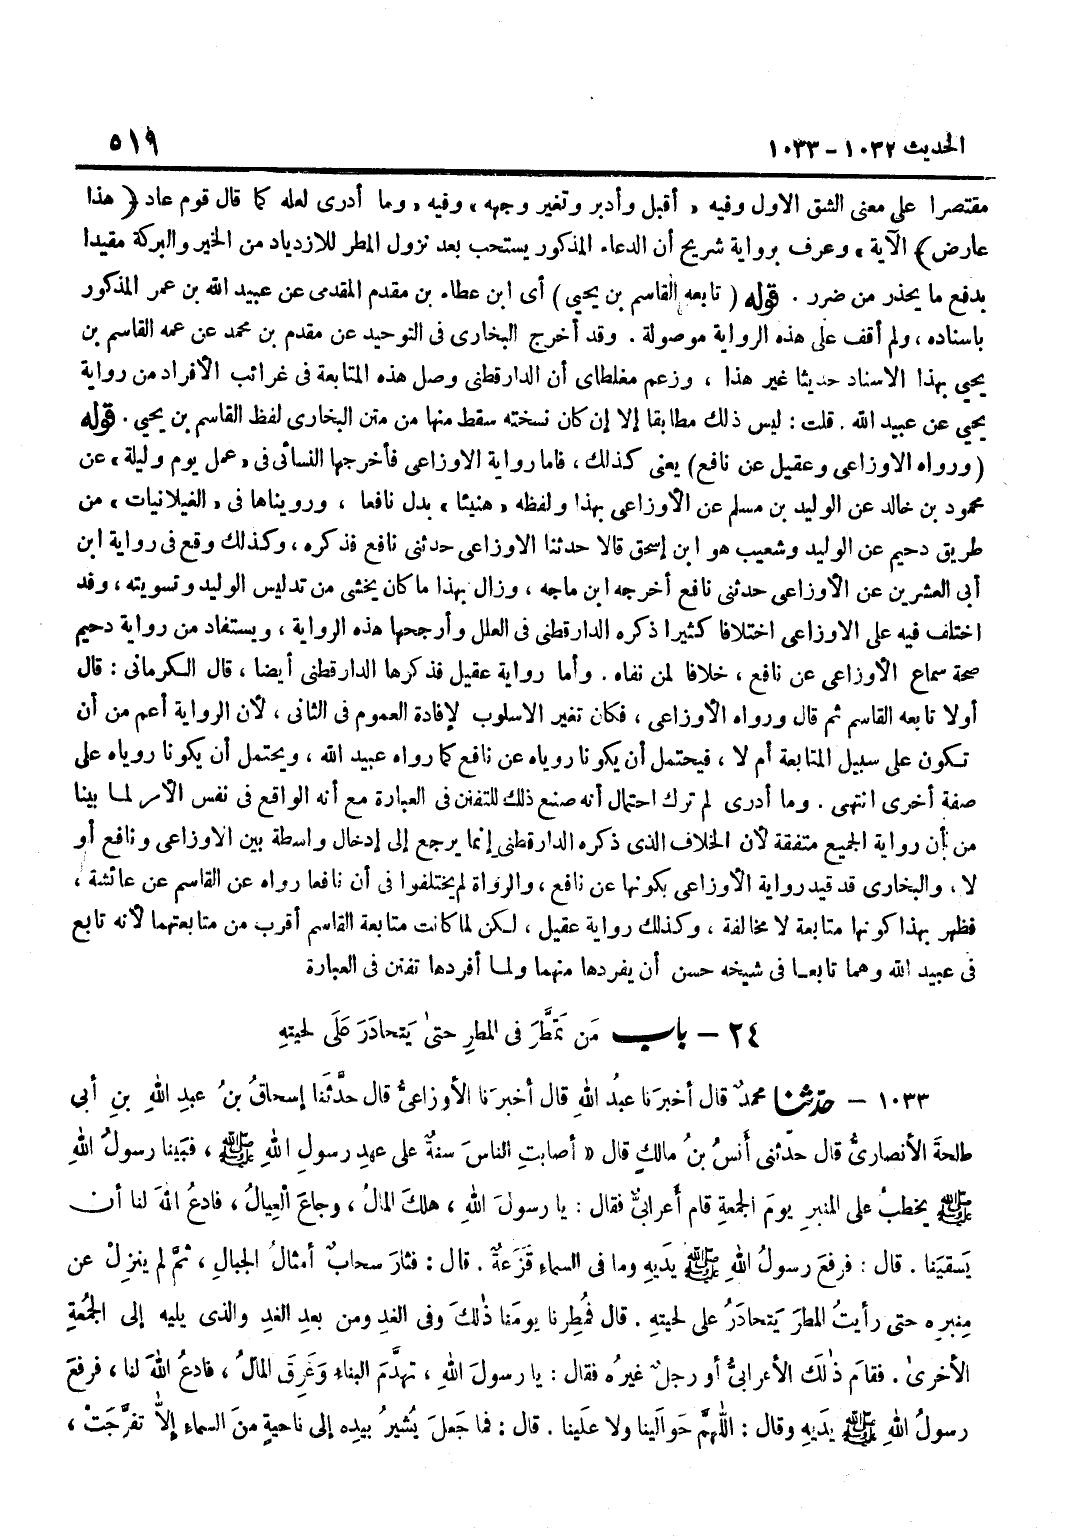 الحديث ١٠٣٢ - ١٠٣٣ ٥١٩
مقتصرا على معنى الشق الاول وفيه « أقبل وأدبر وتغير وجهه » وفيه « وما أدرى لعله كما قال قوم عاد ( هذا
عارض ) الآية » وعرف برواية شريح أن الدعاء المذكور يستحب بعد نزول المطر للازدياد من الخير والبركة مقيدا
بدفع ما يحذر من ضرر . قوله ( تابعه القاسم بن يحيي ) أى ابن عطاء بن مقدم المقدمى عن عبيد الله بن عمر المذكور
باسناده ، ولم أقف على هذه الرواية موصولة . وقد أخرج البخارى فى التوحيد عن مقدم بن محمد عن عمه القاسم بن
يحيي بهذا الاسناد حديثا غير هذا ، وزعم مغلطاى أن الدارقطنى وصل هذه المتابعة فى غرائب الأفراد من رواية
يحيي عن عبيد الله . قلت : ليس ذلك مطابقا إلا إن كان نسخته سقط منها من متن البخارى لفظ القاسم بن يحيي . قوله
( ورواه الاوزاعى وعقيل عن نافع ) يعنى كذلك ، فاما رواية الاوزاعى فأخرجها النسائى فى « عمل يوم وليلة » عن
محمود بن خالد عن الوليد بن مسلم عن الأوزاعى بهذا ولفظه « هنيئا » بدل نافعا ، ورويناها فى « الغيلانيات » من
طريق دحيم عن الوليد وشعيب هو ابن إسحق قالا حدثنا الاوزاعى حدثنى نافع فذكره ، وكذلك وقع فى رواية ابن
أبى العشرين عن الأوزاعى حدثنى نافع أخرجه ابن ماجه ، وزال بهذا ما كان يخشى من تدليس الوليد وتسويته ، وقد
اختلف فيه على الاوزاعى اختلافا كثيرا ذكره الدارقطنى فى العلل وأرجحها هذه الرواية ، ويستفاد من رواية دحيم
صحة سماع الأوزاعى عن نافع ، خلافا لمن نفاه . وأما رواية عقيل فذكرها الدارقطنى أيضا ، قال الكرمانى : قال
أولا تابعه القاسم ثم قال ورواه الأوزاعى ، فكان تغير الاسلوب لإفادة العموم فى الثانى ، لأن الرواية أعم من أن
تكون على سبيل المتابعة أم لا ، فيحتمل أن يكونا روياه عن نافع كما رواه عبيد الله ، ويحتمل أن يكونا روياه على
صفة أخرى انتهى . وما أدرى لم ترك احتمال أنه صنع ذلك للتفنن فى العبارة مع أنه الواقع فى نفس الأمر لما بينا
من أن رواية الجميع متفقة لأن الخلاف الذى ذكره الدارقطنى إنما يرجع إلى إدخال واسطة بين الاوزاعى ونافع أو
لا ، والبخارى قد قيد رواية الأوزاعى بكونها عن نافع ، والرواة لم يختلفوا فى أن نافعا رواه عن القاسم عن عائشة ،
فظهر بهذا كونها متابعة لا مخالفة ، وكذلك رواية عقيل ، لكن لما كانت متابعة القاسم أقرب من متابعتهما لأنه تابع
فى عبيد الله وهما تابعا فى شيخه حسن أن يفردها منهما ولما أفردها تفنن فى العبارة
٢٤ - باب مَن تمَطَّرَ فى المطرِ حتىٰ يَتحادَرَ عَلَى لحيتهِ
١٠٣٣ - حدّثنا محمدٌ قال أخبرَنا عبدُ اللهِ قال أخبرَنا الأوزاعىُّ قال حدَّثَنا إسحاقُ بنُ عبدِ اللهِ بنِ أبى
طلحةَ الأنصارىُّ قال حدّثنى أنسُ بنُ مالكٍ قال « أصابتِ الناسَ سنةٌ على عهدِ رسولِ اللهِ ﷺ ، فبَينا رسولُ اللهِ
ﷺ يخطبُ على المنبرِ يومَ الجمعةِ قام أعرابىٌّ فقال : يا رسولَ اللهِ ، هلكَ المالُ ، وجاعَ العِيالُ ، فادعُ اللهَ لنا أن
يَسقيَنا . قال : فرفعَ رسولُ اللهِ ﷺ يدَيهِ وما فى السماءِ قَزَعةٌ . قال : فثارَ سحابٌ أمثالُ الجبالِ ، ثمَّ لم ينزِلْ عن
مِنبرِه حتى رأيتُ المطرَ يَتحادَرُ على لحيتهِ . قال فمُطِرنا يومَنا ذٰلكَ وفى الغدِ ومن بعدِ الغدِ والذى يليه إلى الجُمُعةِ
الأخرىٰ . فقامَ ذٰلكَ الأعرابىُّ أو رجلٌ غيرُه فقال : يا رسولَ اللهِ ، تهدَّمَ البناءِ وَغَرِقَ المالُ ، فادعُ اللهَ لنا ، فرفعَ
رسولُ اللهِ ﷺ يدَيهِ وقال : اللهُمَّ حَوالَينا ولا علَينا . قال : فما جَعلَ يُشيرُ بيدِه إلى ناحيةٍ منَ السماءِ إلاَّ تفرَّجَتْ ،